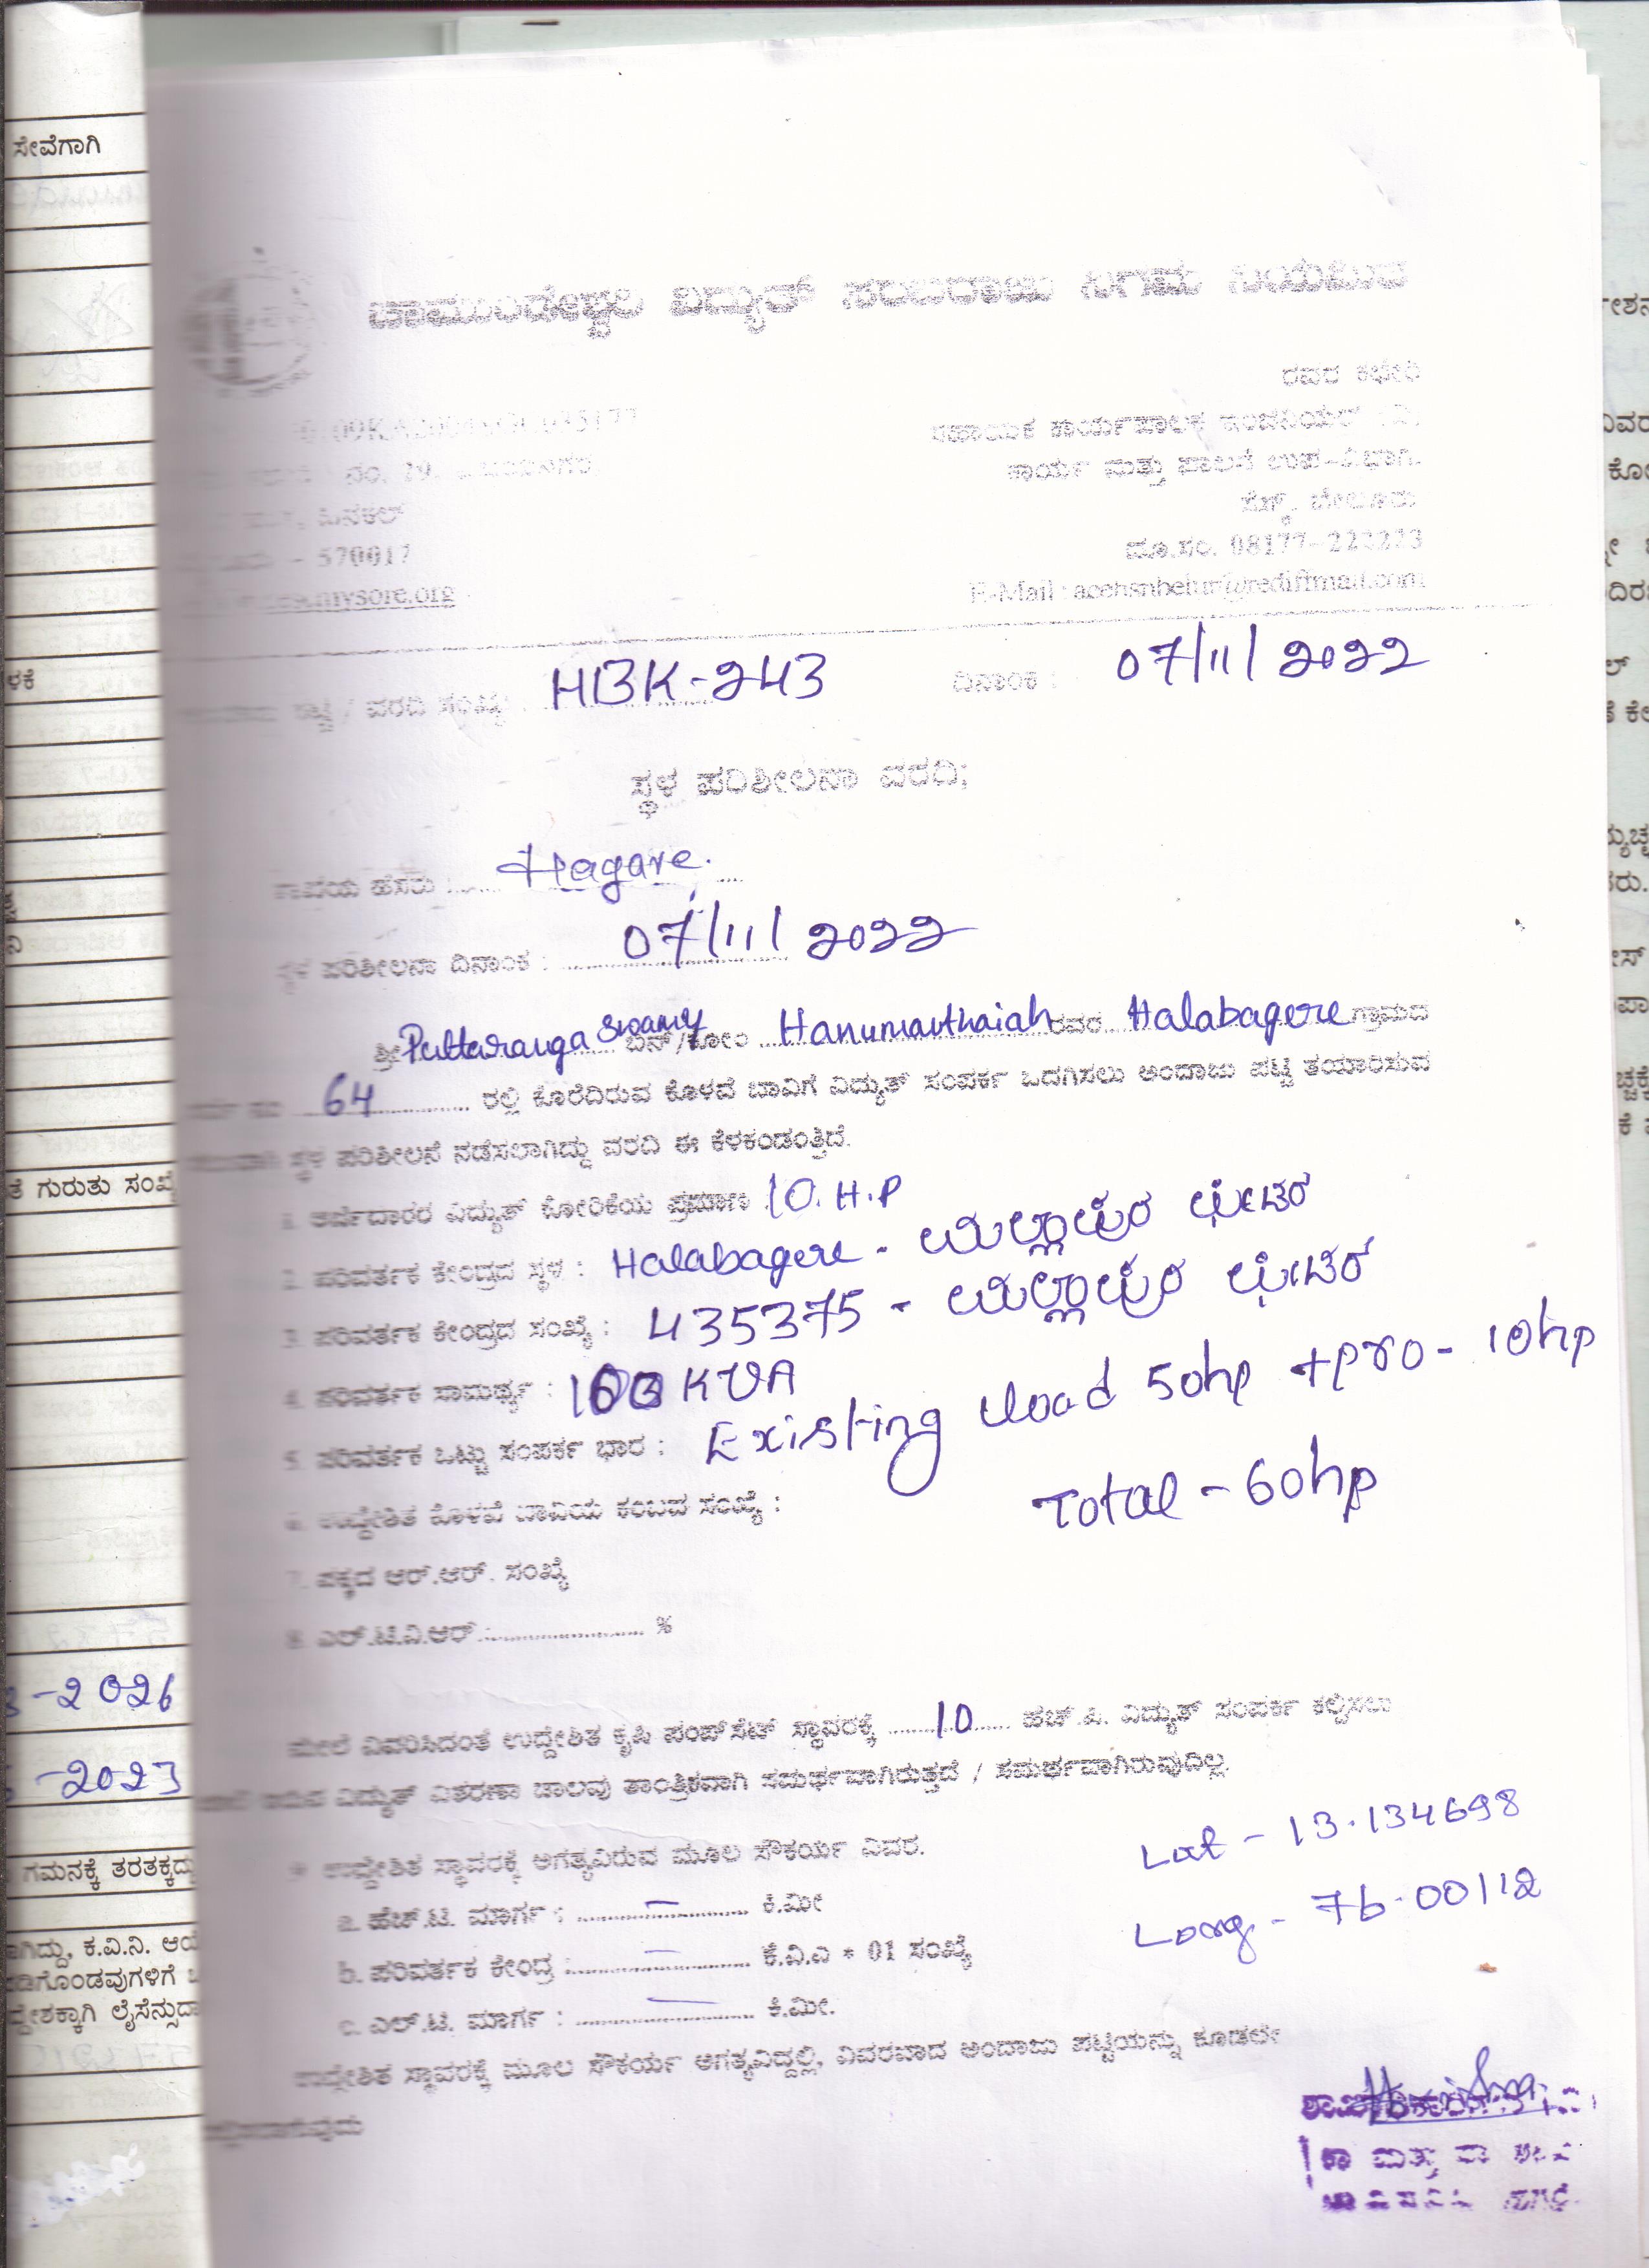 ಸೇವೆಗಾಗಿ
ಚಾಮುಂಡೇಶ್ವರಿ ವಿದ್ಯುತ್ ಸರಬರಾಜು ನಿಗಮ ನಿಯಮಿತ
ರವರ ಕಛೇರಿ
ಸಹಾಯಕ ಕಾರ್ಯಪಾಲಕ ಇಂಜಿನಿಯರ್
ನಂ. 29, ವಿಜಯನಗರ
ಕಾರ್ಯ ಮತ್ತು ಪಾಲನೆ ಉಪ-ವಿಭಾಗ.
ಹಿನಕಲ್
ಸೆಸ್ಕ್, ಬೇಲೂರು
- 570017
ದೂ.ಸಂ. 08177-222223
mysore.org
E-Mail : aeehsnbelur@rediffmail.com
/ ವರದಿ ಸಂಖ್ಯೆ: HBK-243 ದಿನಾಂಕ : 07/11/2022
ಸ್ಥಳ ಪರಿಶೀಲನಾ ವರದಿ;
ಶಾಖೆಯ ಹೆಸರು : Hagare.
ಸ್ಥಳ ಪರಿಶೀಲನಾ ದಿನಾಂಕ : 07/11/2022
ಶ್ರೀ Puttaranga Swamy ಬಿನ್/ಕೋಂ Hanumanthaiah ರವರ Halabagere ಗ್ರಾಮದ
64 ರಲ್ಲಿ ಕೊರೆದಿರುವ ಕೊಳವೆ ಬಾವಿಗೆ ವಿದ್ಯುತ್ ಸಂಪರ್ಕ ಒದಗಿಸಲು ಅಂದಾಜು ಪಟ್ಟಿ ತಯಾರಿಸುವ
ಸ್ಥಳ ಪರಿಶೀಲನೆ ನಡೆಸಲಾಗಿದ್ದು ವರದಿ ಈ ಕೆಳಕಂಡಂತ್ತಿದೆ.
1. ಅರ್ಜಿದಾರರ ವಿದ್ಯುತ್ ಕೋರಿಕೆಯ ಪ್ರಮಾಣ : 10. H.P
2. ಪರಿವರ್ತಕ ಕೇಂದ್ರದ ಸ್ಥಳ : Halabagere - ಮಲ್ಲಾಪುರ ಫೀಡರ್
3. ಪರಿವರ್ತಕ ಕೇಂದ್ರದ ಸಂಖ್ಯೆ : 435375 - ಮಲ್ಲಾಪುರ ಫೀಡರ್
4. ಪರಿವರ್ತಕ ಸಾಮರ್ಥ್ಯ : KVA
5. ಪರಿವರ್ತಕ ಒಟ್ಟು ಸಂಪರ್ಕ ಭಾರ : Existing load 50hp + pro - 10hp
Total - 60hp
6. ಉದ್ದೇಶಿತ ಕೊಳವೆ ಬಾವಿಯ ಕಂಬದ ಸಂಖ್ಯೆ :
7. ಪಕ್ಕದ ಆರ್.ಆರ್. ಸಂಖ್ಯೆ
8. ಎಲ್.ಟಿ.ವಿ.ಆರ್ : %
ಮೇಲೆ ವಿವರಿಸಿದಂತೆ ಉದ್ದೇಶಿತ ಕೃಷಿ ಪಂಪ್‌ಸೆಟ್ ಸ್ಥಾವರಕ್ಕೆ 10 ಹೆಚ್.ಪಿ. ವಿದ್ಯುತ್ ಸಂಪರ್ಕ ಕಲ್ಪಿಸಲು
ವಿದ್ಯುತ್ ವಿತರಣಾ ಜಾಲವು ತಾಂತ್ರಿಕವಾಗಿ ಸಮರ್ಥವಾಗಿರುತ್ತದೆ / ಸಮರ್ಥವಾಗಿರುವುದಿಲ್ಲ.
9 ಉದ್ದೇಶಿತ ಸ್ಥಾವರಕ್ಕೆ ಅಗತ್ಯವಿರುವ ಮೂಲ ಸೌಕರ್ಯ ವಿವರ.
Lat - 13.134698
a. ಹೆಚ್.ಟಿ. ಮಾರ್ಗ : — ಕಿ.ಮೀ
Long - 76.00112
b. ಪರಿವರ್ತಕ ಕೇಂದ್ರ : — ಕೆ.ವಿ.ಎ * 01 ಸಂಖ್ಯೆ
c. ಎಲ್.ಟಿ. ಮಾರ್ಗ : — ಕಿ.ಮೀ.
ಉದ್ದೇಶಿತ ಸ್ಥಾವರಕ್ಕೆ ಮೂಲ ಸೌಕರ್ಯ ಅಗತ್ಯವಿದ್ದಲ್ಲಿ, ವಿವರವಾದ ಅಂದಾಜು ಪಟ್ಟಿಯನ್ನು ಕೂಡಲೇ
ಗುರುತು ಸಂಖ್ಯೆ
-2026
-2023
ಗಮನಕ್ಕೆ ತರತಕ್ಕದ್ದು